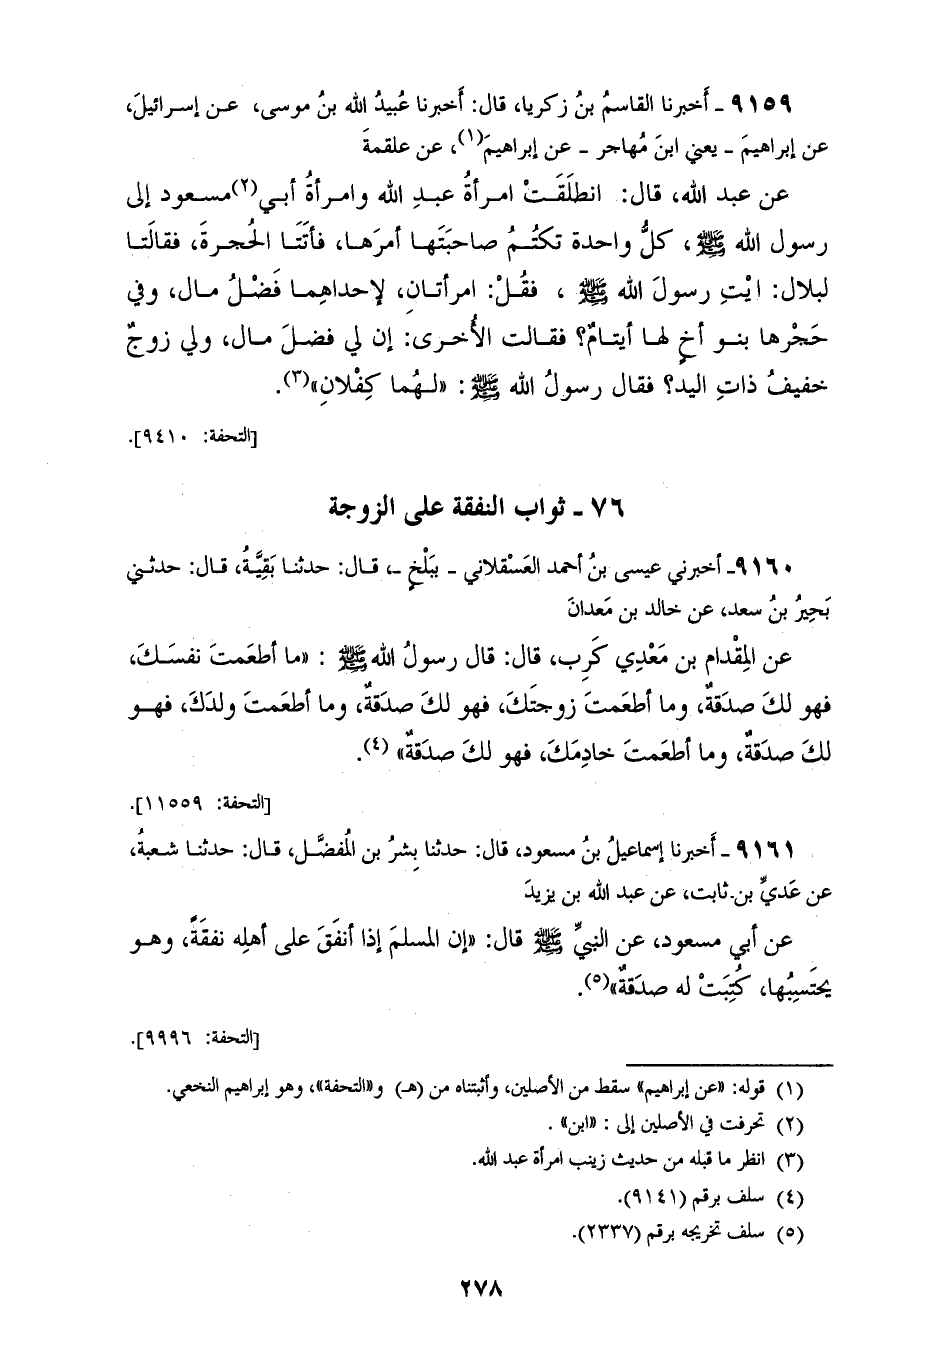 ٩١٥٩ ـ أَخبرنا القاسمُ بنُ زكريا، قال: أَخبرنا عُبيدُ الله بنُ موسى، عـن إسـرائيلَ،
عن إبراهيمَ ـ يعني ابنَ مُهاجر ـ عن إبراهيمَ(١)، عن علقمةَ
عن عبد الله، قال: انطلَقَـتْ امـرأةُ عبـدِ الله وامـرأةُ أبـي(٢)مسـعود إلى
رسول الله ﷺ، كلُّ واحدة تكتُـمُ صاحبَتَهـا أمرَهـا، فأتَتَـا الحُجـرةَ، فقالَتـا
لبلال: ايْتِ رسولَ الله ﷺ ، فقُـلْ: امرأتـان، لإحداهِمـا فَضْـلُ مـال، وفي
حَجْرهـا بنـو أخٍ لهـا أيتـامٌ؟ فقـالت الأُخـرى: إن لي فضـلَ مـال، ولي زوجٌ
خفيفُ ذاتِ اليد؟ فقال رسولُ الله ﷺ: «لـهُما كِفْلانِ»(٣).
[التحفة: ٩٤١٠].
٧٦ ـ ثواب النفقة على الزوجة
٩١٦٠ـ أخبرني عيسى بنُ أحمد العَسْقلاني ـ بِبَلْخٍ ـ، قـال: حدثنـا بَقِيَّـةُ، قـال: حدثـني
بَحِيرُ بنُ سعد، عن خالد بن مَعدانَ
عن المِقْدام بن مَعْدِي كَرِب، قال: قال رسولُ الله ﷺ : «ما أطعَمتَ نفسَـكَ،
فهو لكَ صدَقةٌ، وما أطعَمتَ زوجتَكَ، فهو لكَ صدَقةٌ، وما أطعَمتَ ولدَكَ، فهـو
لكَ صدَقةٌ، وما أطعَمتَ خادِمَكَ، فهو لكَ صدَقةٌ» (٤).
[التحفة: ١١٥٥٩].
٩١٦١ ـ أَخبرنا إسماعيلُ بنُ مسعود، قال: حدثنا بِشرُ بن المُفضَّـل، قـال: حدثنـا شـعبةُ،
عن عَديِّ بن ثابت، عن عبد الله بن يزيدَ
عن أبي مسعود، عن النبيِّ ﷺ قال: «إن المسلمَ إذا أنفَقَ على أهلِه نفقَةً، وهـو
يحتَسِبُها، كُتِبَتْ له صدَقةٌ»(٥).
[التحفة: ٩٩٩٦].
(١) قوله: «عن إبراهيم» سقط من الأصلين، وأثبتناه من (هـ) و«التحفة»، وهو إبراهيم النخعي.
(٢) تحرفت في الأصلين إلى : «ابن» .
(٣) انظر ما قبله من حديث زينب امرأة عبد الله.
(٤) سلف برقم (٩١٤١).
(٥) سلف تخريجه برقم (٢٣٣٧).
٢٧٨